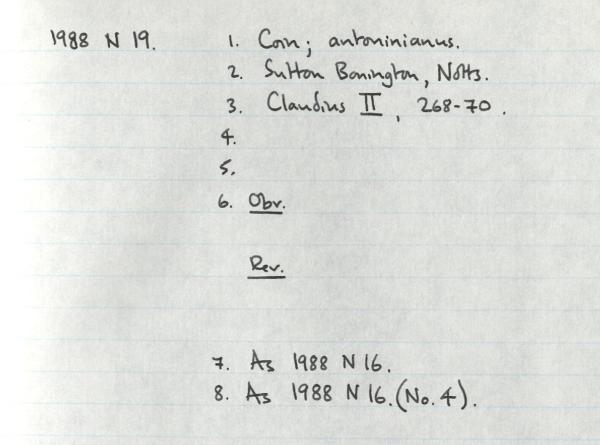 1988 N 19. 1. Coin; antoninianus.
2. Sutton Bonington, Notts.
3. Claudius II, 268-70.
4.
5.
6. Obv.
Rev.
7. As 1988 N 16.
8. As 1988 N 16. (No. 4).